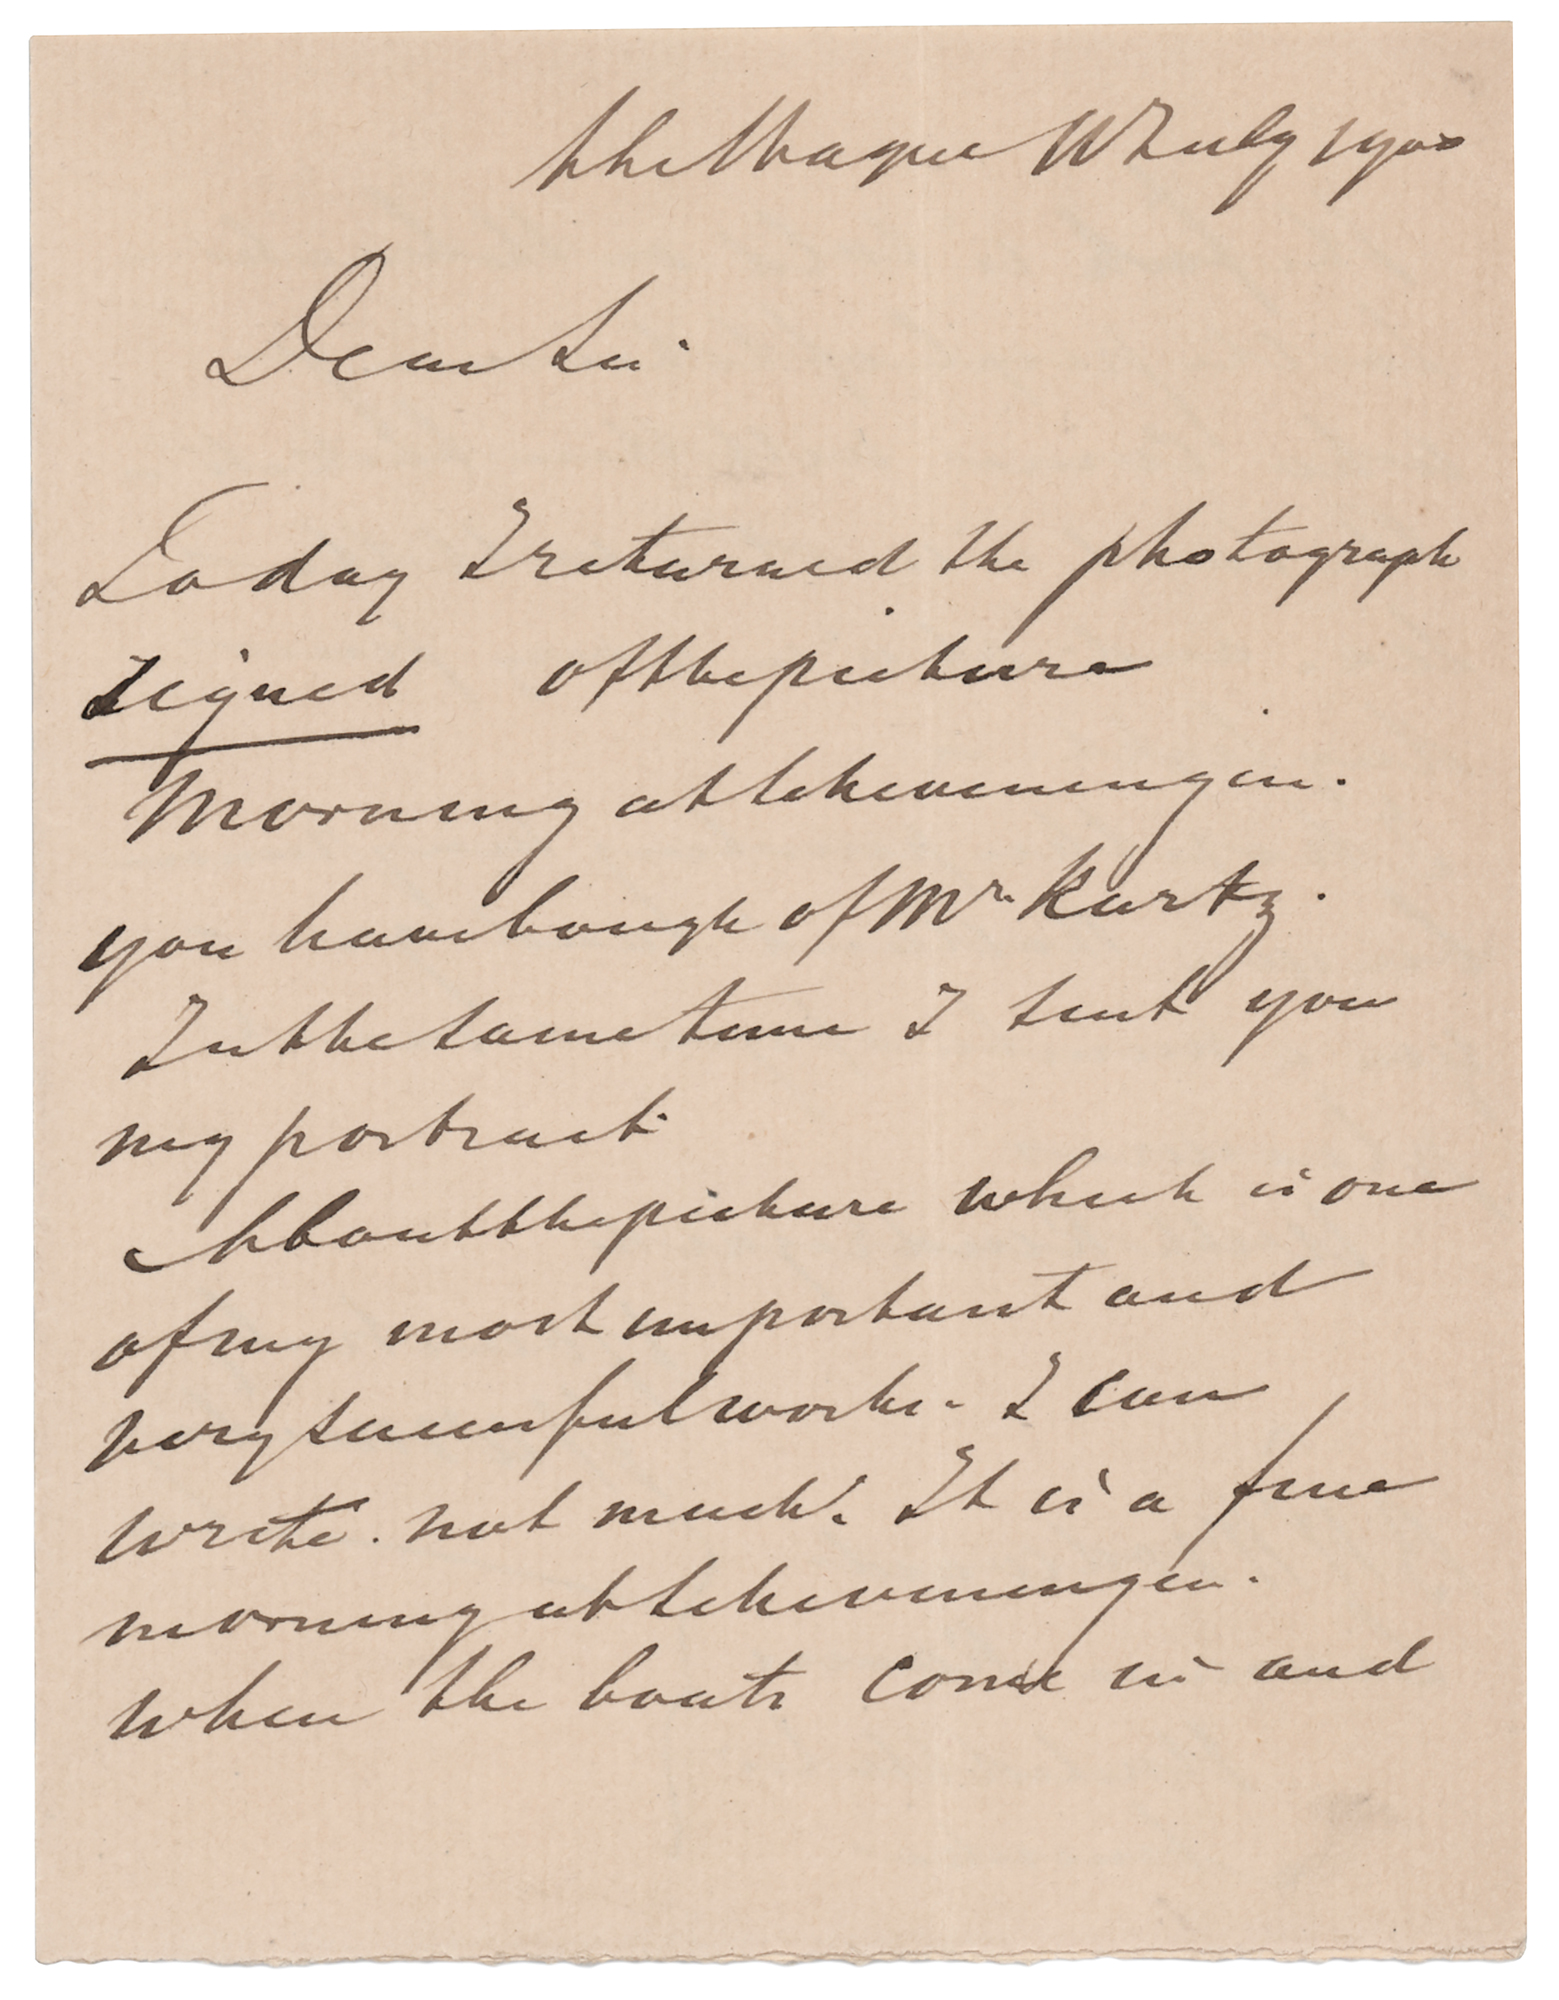 the Hague July 1900
Dear Sir.
To day I returned the photograph
signed of the picture
Morning at Scheveningen.
you have bough of Mr. Kurtz.
In the same time I sent you
my portrait
About the picture which is one
of my most important and
very succesful works. I can
write. not much. It is a fine
morning at Scheveningen.
when the boats come in and